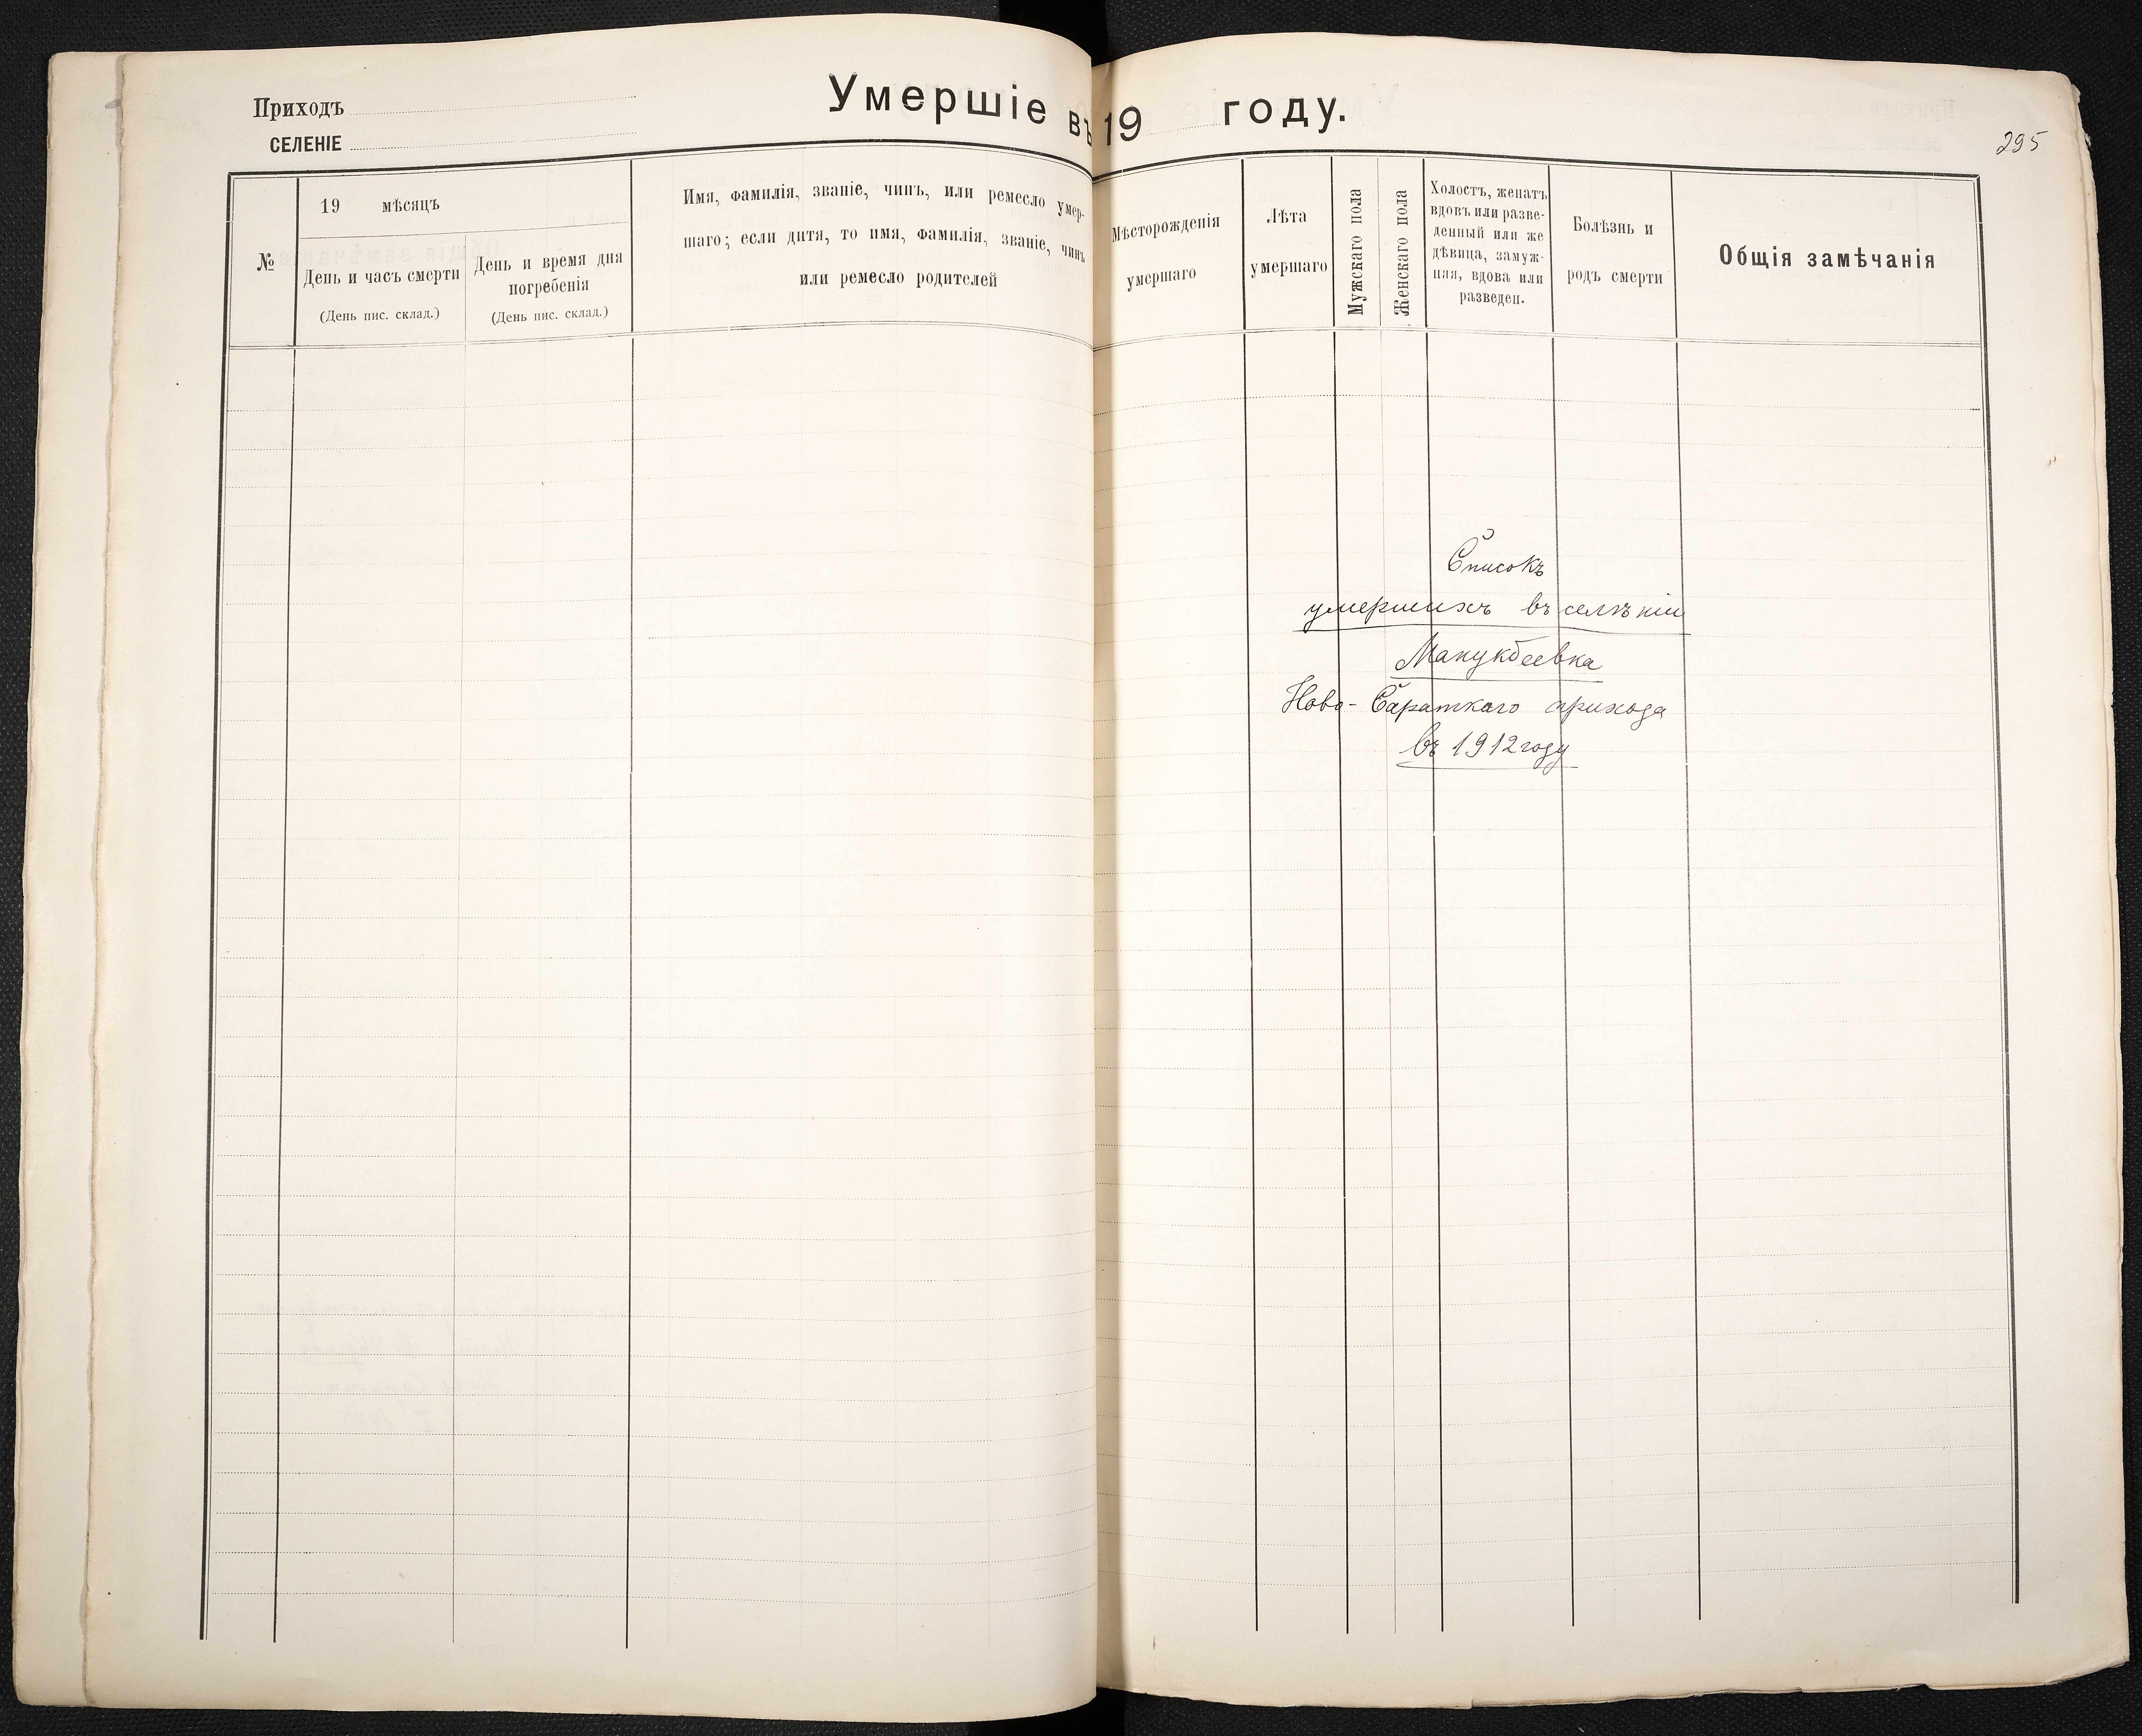 Приходъ
СЕЛЕНІЕ
Умершіе въ 19 году.
295
№
19 мѣсяцъ
День и часъ смерти
(День пис. склад.)
День и время дня
погребенія
(День пис. склад.)
Имя, фамилія, званіе, чинъ, или ремесло умер-
шаго; если дитя, то имя, фамилія, званіе, чинъ
или ремесло родителей
Мѣсторожденія
умершаго
Лѣта
умершаго
Мужскаго пола
Женскаго пола
Холостъ, женатъ
вдовъ или разве-
денный или же
дѣвица, замуж-
няя, вдова или
разведен.
Болѣзнь и
родъ смерти
Общія замѣчанія
Списокъ
умершихъ въ селѣніи
Манукбеевка
Ново-Сараткаго прихода
въ 1912 году